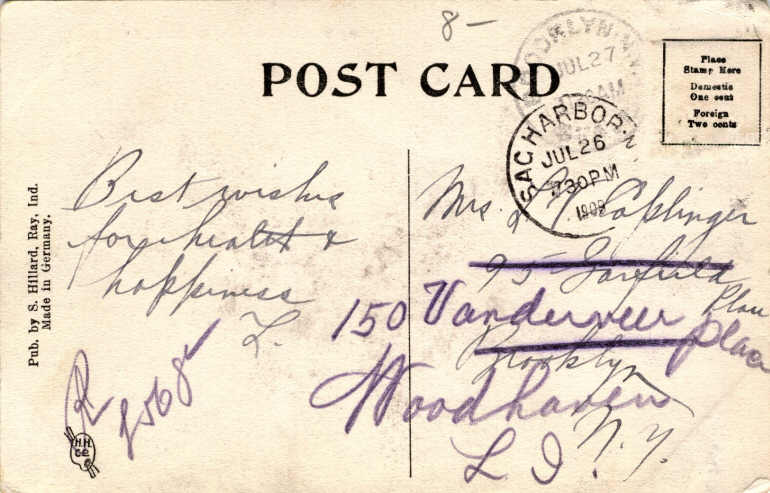 8-
POST CARD
BROOKLYN, N.Y.
JUL 27
AM
SAG HARBOR
JUL 26
730PM
1909
Place
Stamp Here
Domestic
One cent
Foreign
Two cents
Pub. by S. Hillard, Ray, Ind.
Made in Germany.
Best wishes
for health &
happiness
L.
Mrs. L
95 Garfield
Place
Brooklyn
N.Y.
150 Vanderveer place
Woodhaven
L I.
H.H.
Co